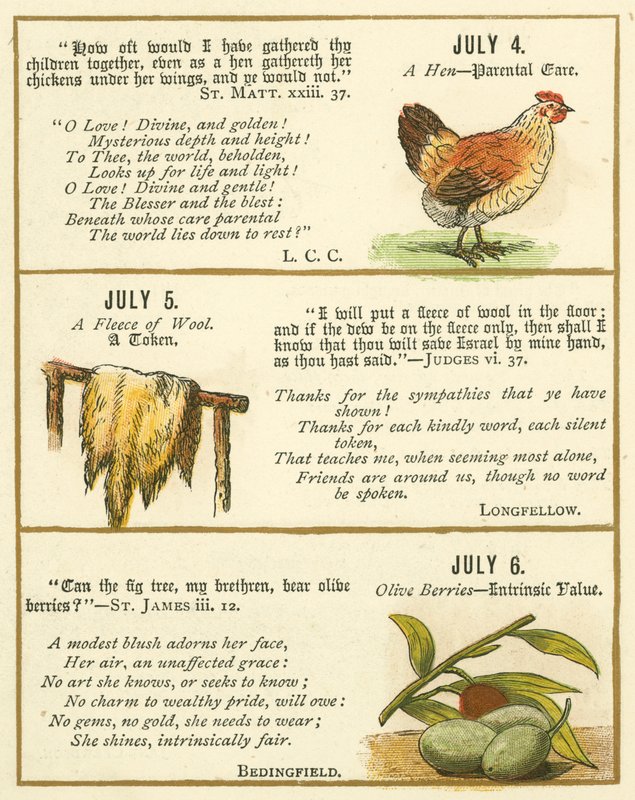 "How oft would I have gathered thy
children together, even as a hen gathereth her
chickens under her wings, and ye would not."
ST. MATT. xxiii. 37.
"O Love! Divine, and golden!
Mysterious depth and height!
To Thee, the world, beholden,
Looks up for life and light!
O Love! Divine and gentle!
The Blesser and the blest:
Beneath whose care parental
The world lies down to rest?"
L. C. C.
JULY 4.
A Hen—Parental Care.
JULY 5.
A Fleece of Wool.
A Token.
"I will put a fleece of wool in the floor;
and if the dew be on the fleece only, then shall I
know that thou wilt save Israel by mine hand,
as thou hast said."—JUDGES vi. 37.
Thanks for the sympathies that ye have
shown!
Thanks for each kindly word, each silent
token,
That teaches me, when seeming most alone,
Friends are around us, though no word
be spoken.
LONGFELLOW.
"Can the fig tree, my brethren, bear olive
berries?"—ST. JAMES iii. 12.
A modest blush adorns her face,
Her air, an unaffected grace:
No art she knows, or seeks to know;
No charm to wealthy pride, will owe:
No gems, no gold, she needs to wear;
She shines, intrinsically fair.
BEDINGFIELD.
JULY 6.
Olive Berries—Intrinsic Value.